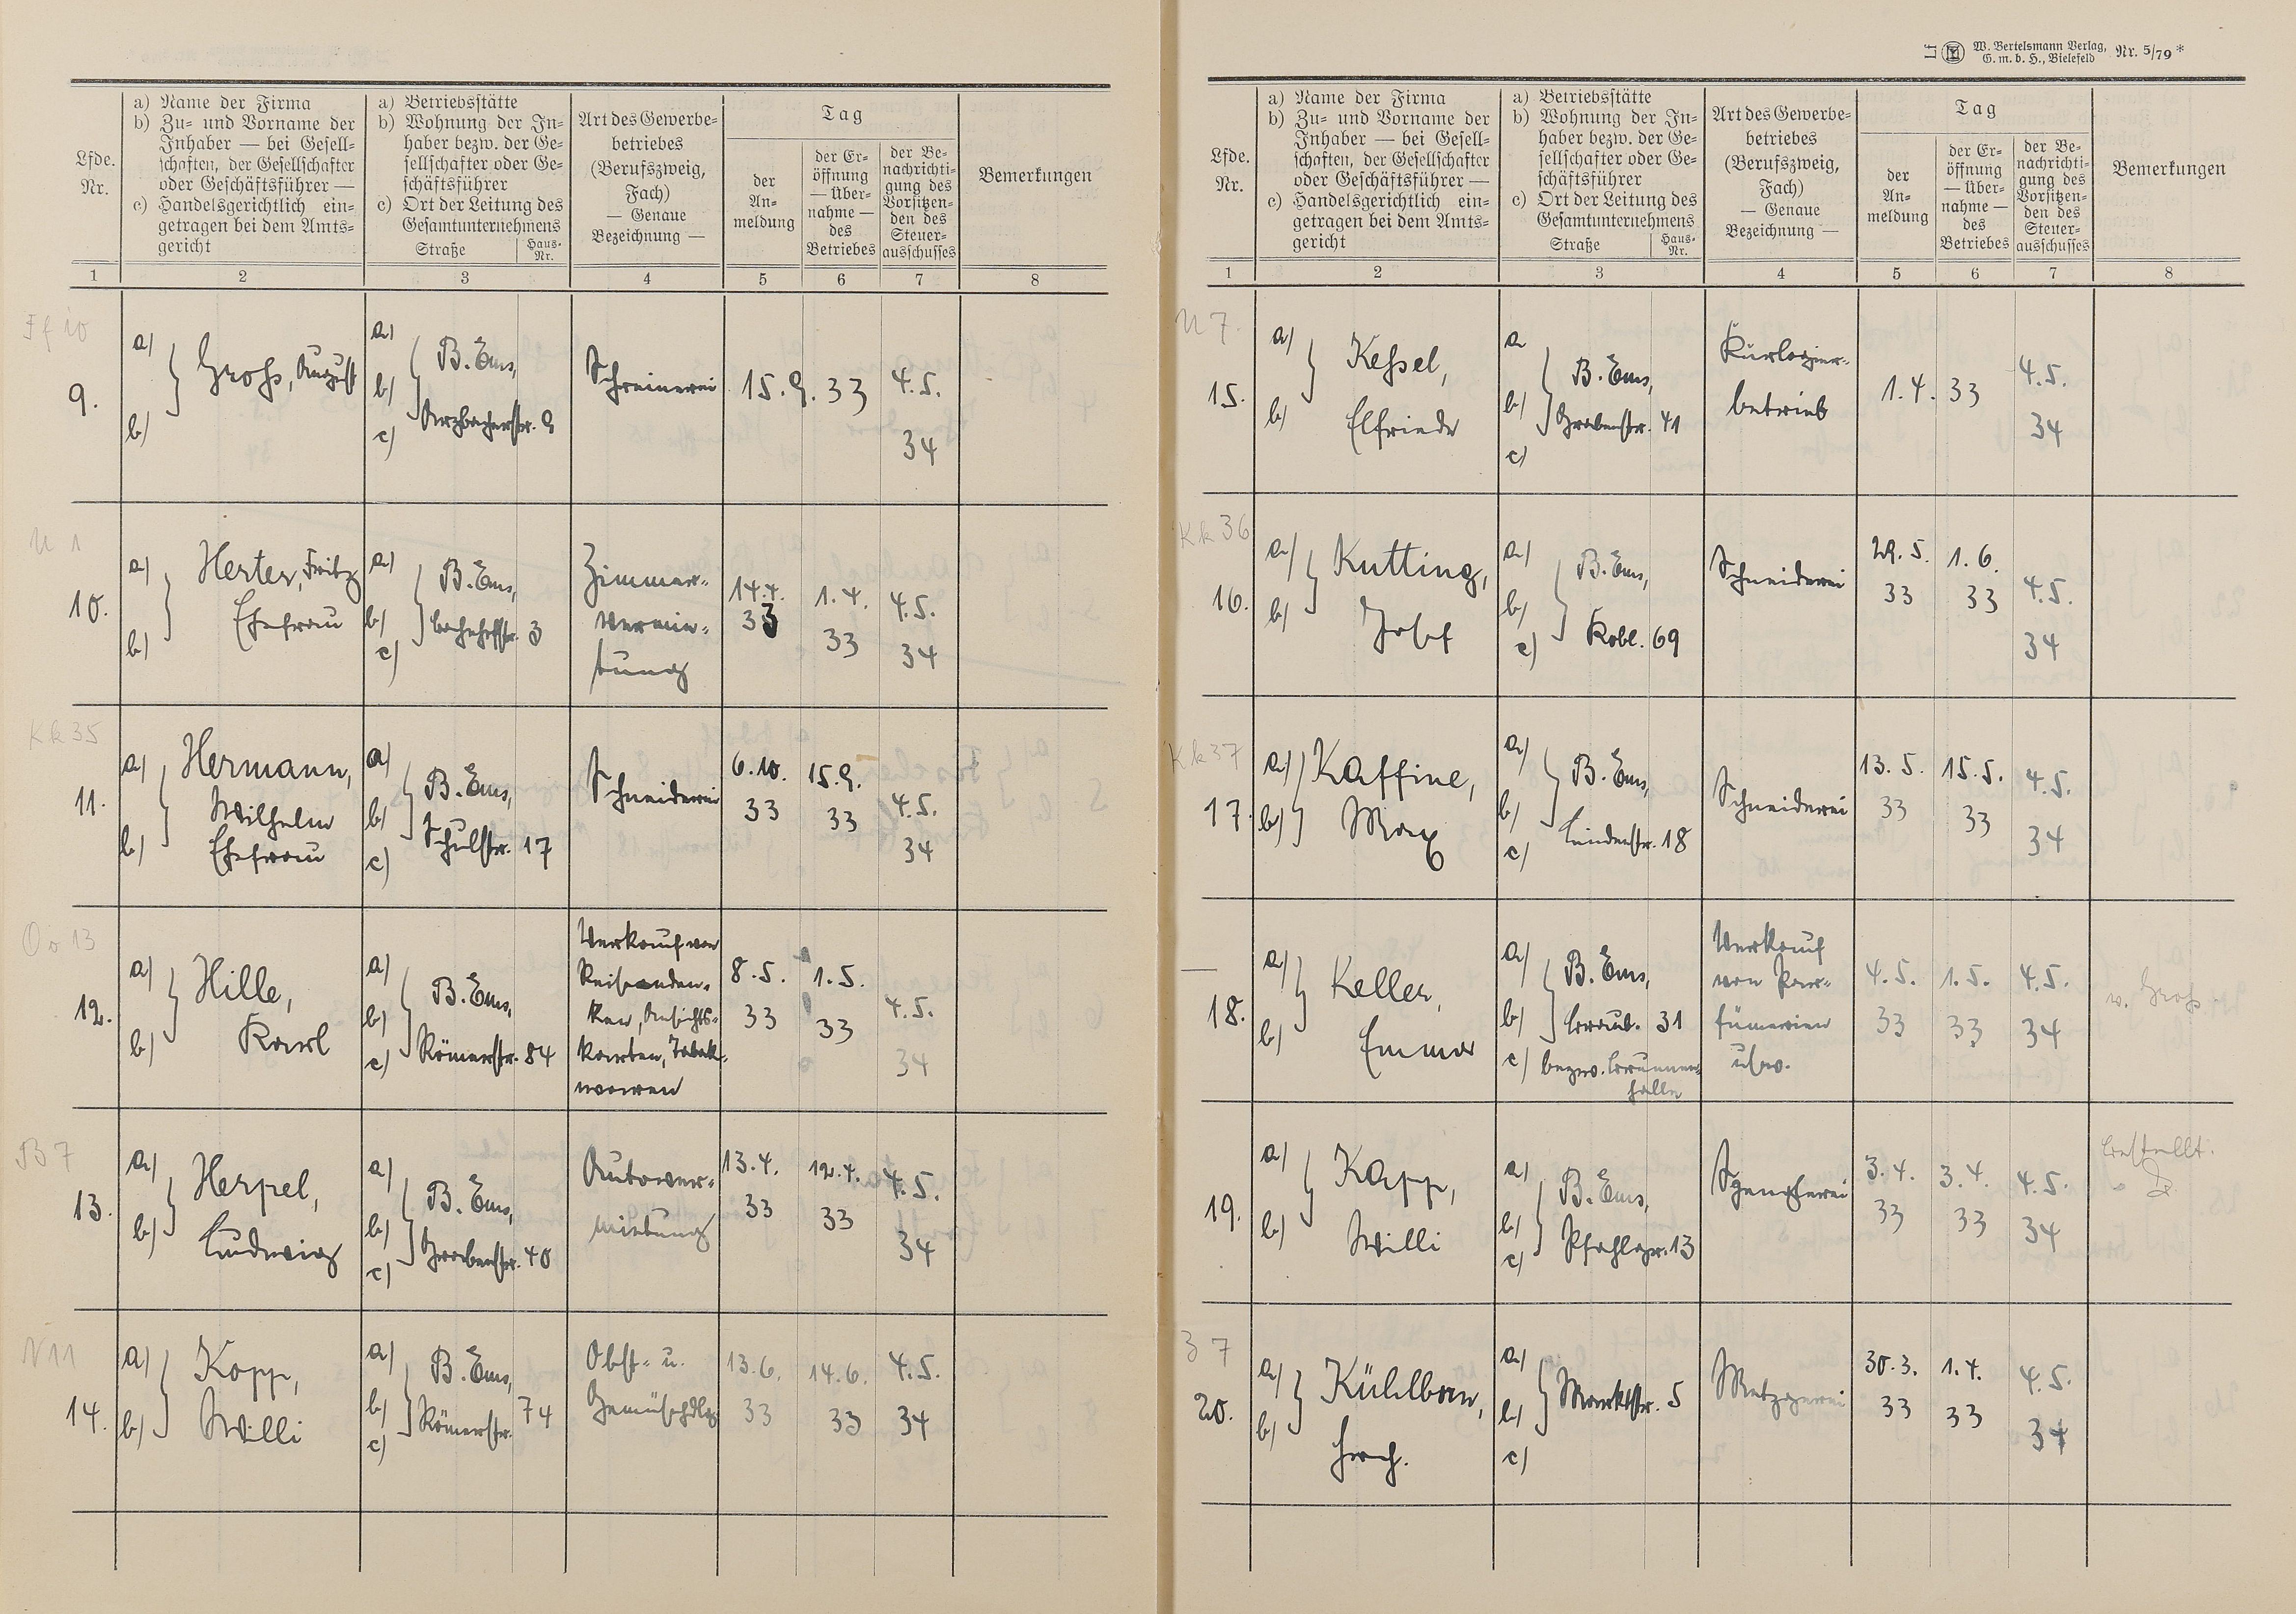 Lfde.
Nr.
a) Name der Firma
b) Zu- und Vorname der
Inhaber — bei Gesell-
schaften, der Gesellschafter
oder Geschäftsführer —
c) Handelsgerichtlich ein-
getragen bei dem Amts-
gericht
a) Betriebsstätte
b) Wohnung der In-
haber bezw. der Ge-
sellschafter oder Ge-
schäftsführer
c) Ort der Leitung des
Gesamtunternehmens
Straße
Haus-
Nr.
Art des Gewerbe-
betriebes
(Berufszweig,
Fach)
— Genaue
Bezeichnung —
Tag
der
An-
meldung
der Er-
öffnung
— Über-
nahme —
des
Betriebes
der Be-
nachrichti-
gung des
Vorsitzen-
den des
Steuer-
ausschusses
Bemerkungen
1 2 3 4 5 6 7 8
Ff 10
9.
a)
b)
Groß, August
a)
b)
c)
B. Ems,
Arzbacherstr. 9
Schreinerei
15. 9. 33
4. 5.
34
U 1
10.
a)
b)
Herter, Fritz
Ehefrau
a)
b)
c)
B. Ems,
Bahnhofstr. 3
Zimmer-
vermie-
tung
14. 4.
33
1. 4.
33
4. 5.
34
Kk 35
11.
a)
b)
Hermann,
Wilhelm
Ehefrau
a)
b)
c)
B. Ems,
Schulstr. 17
Schneiderei
6. 10.
33
15. 9.
33
4. 5.
34
Oo 13
12.
a)
b)
Hille,
Karl
a)
b)
c)
B. Ems,
Römerstr. 84
Verkauf von
Reiseanden-
ken, Ansichts-
karten, Tabak-
waren
8. 5.
33
1. 5.
33
4. 5.
34
B 7
13.
a)
b)
Herpel,
Ludwig
a)
b)
c)
B. Ems,
Grabenstr. 40
Autover-
mietung
13. 4.
33
12. 4.
33
4. 5.
34
N 11
14.
a)
b)
Kopp,
Willi
a)
b)
c)
B. Ems,
Römerstr. 74
Obst- u.
Gemüsehdlg
13. 6.
33
14. 6.
33
4. 5.
34
W. Bertelsmann Verlag,
G. m. b. H., Bielefeld
Nr. 5/79*
Lfde.
Nr.
a) Name der Firma
b) Zu- und Vorname der
Inhaber — bei Gesell-
schaften, der Gesellschafter
oder Geschäftsführer —
c) Handelsgerichtlich ein-
getragen bei dem Amts-
gericht
a) Betriebsstätte
b) Wohnung der In-
haber bezw. der Ge-
sellschafter oder Ge-
schäftsführer
c) Ort der Leitung des
Gesamtunternehmens
Straße
Haus-
Nr.
Art des Gewerbe-
betriebes
(Berufszweig,
Fach)
— Genaue
Bezeichnung —
Tag
der
An-
meldung
der Er-
öffnung
— Über-
nahme —
des
Betriebes
der Be-
nachrichti-
gung des
Vorsitzen-
den des
Steuer-
ausschusses
Bemerkungen
1 2 3 4 5 6 7 8
U 7.
15.
a)
b)
Keßel,
Elfriede
a
b)
c)
B. Ems,
Grabenstr. 41
Kurlogier-
betrieb
1. 4. 33
4. 5.
34
Kk 36
16.
a)
b)
Kutting,
Josef
a)
b)
c)
B. Ems,
Kobl. 69
Schneiderei
29. 5.
33
1. 6.
33
4. 5.
34
Kk 37
17.
a)
b)
Kaffine,
Max
a)
b)
c)
B. Ems,
Lindenstr. 18
Schneiderei
13. 5.
33
15. 5.
33
4. 5.
34
—
18.
a)
b)
Keller,
Emma
a)
b)
c)
B. Ems,
31
bezw. Brunnen-
halle
Verkauf
von Par-
fümerien
usw.
4. 5.
33
1. 5.
33
4. 5.
34
19.
a)
b)
Kapp,
Willi
a)
b)
c)
B. Ems,
Pfahlgr. 13
Spenglerei
3. 4.
33
3. 4.
33
4. 5.
34
3 7
20.
a)
b)
Kühlborn,
Hrch.
a)
b)
c)
Marktstr. 5
Metzgerei
30. 3.
33
1. 4.
33
4. 5.
34